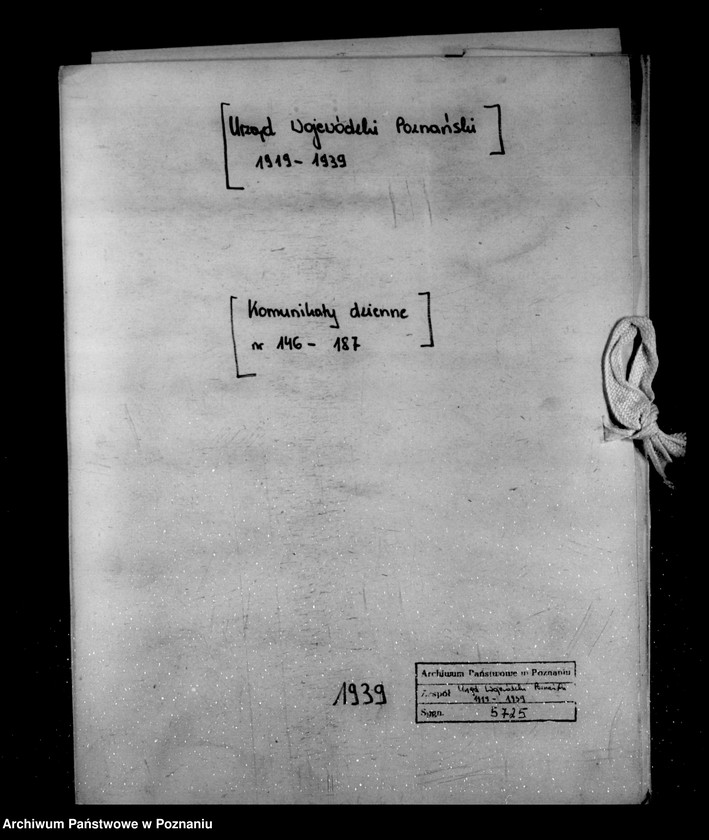 [Urząd Wojewódzki Poznański]
1919 - 1939
[Komunikaty dzienne]
nr 146 - 187
1939
Archiwum Państwowe w Poznaniu
Zespół Urząd Wojewódzki Poznański
1919 - 1939
Sygn. 5725
Archiwum Państwowe w Poznaniu